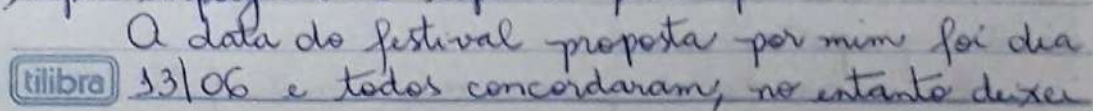 A data do festival proposta por mim foi dia
tilibra 13/06 e todos concordaram, no entanto deixei